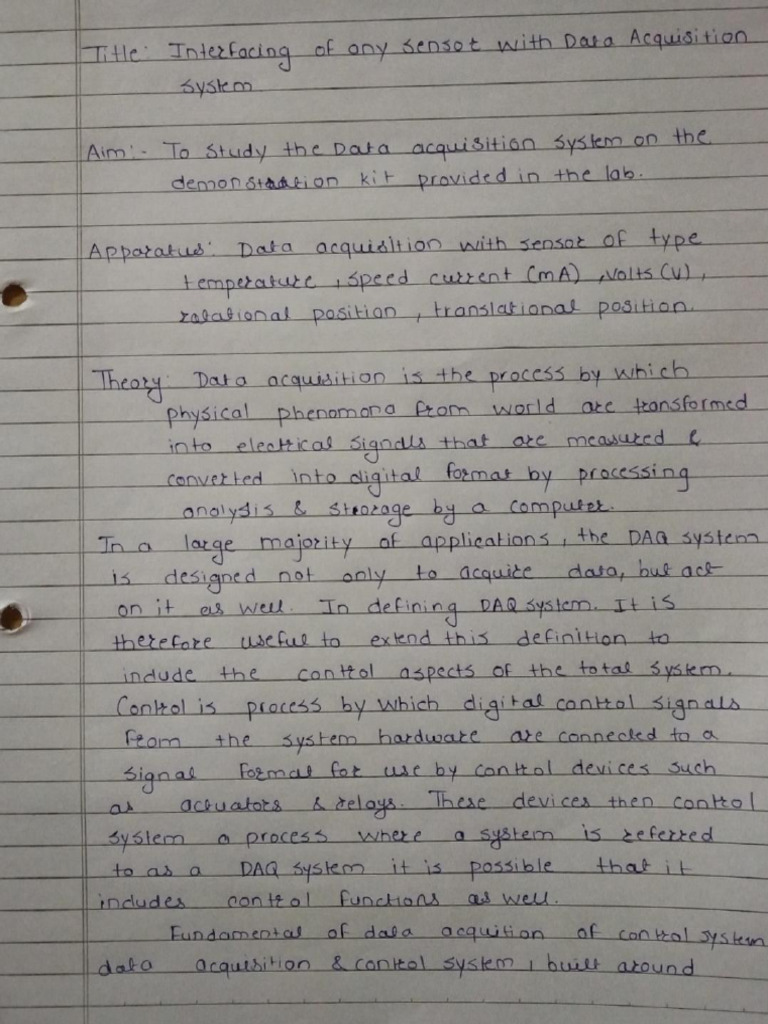 Title: Interfacing of any sensor with Data Acquisition
system
Aim:- To study the Data acquisition system on the
demonstration kit provided in the lab.
Apparatus: Data acquisition with sensor of type
temperature, speed current (mA), volts (V),
rotational position, translational position.
Theory: Data acquisition is the process by which
physical phenomona from world are transformed
into electrical signals that are measured &
converted into digital format by processing
analysis & storage by a computer.
In a large majority of applications, the DAQ system
is designed not only to acquire data, but act
on it as well. In defining DAQ system. It is
therefore useful to extend this definition to
include the control aspects of the total system.
Control is process by which digital control signals
from the system hardware are connected to a
signal format for use by control devices such
as actuators & relays. These devices then control
system a process where a system is referred
to as a DAQ system it is possible that it
includes control functions as well.
Fundamental of data acquition of control system
data acquisition & control system, built around